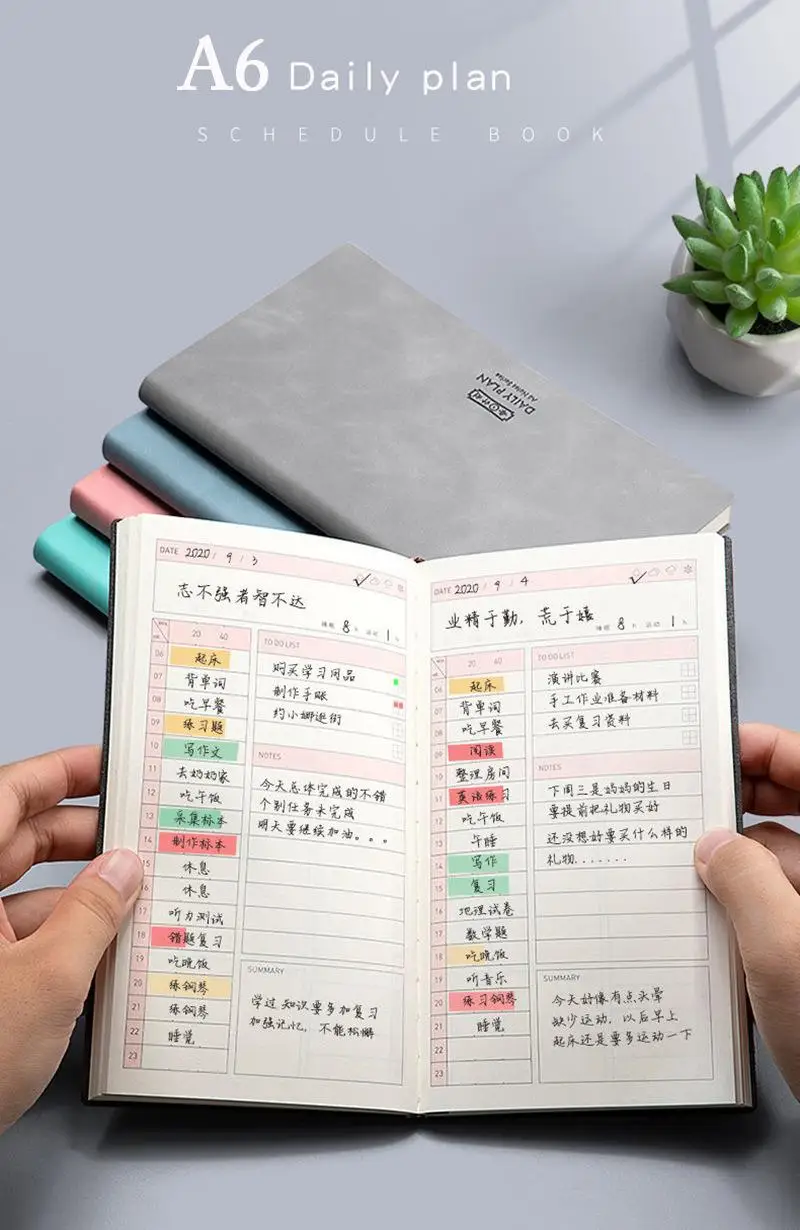 A6 Daily plan
SCHEDULE BOOK
DAILY PLAN
DATE 2020 / 9 / 3
志不强者智不达
8 h 1 h
20 40
06 起床
07 背单词
08 吃早餐
09 练习题
10 写作文
11 去奶奶家
12 吃午饭
13 采集标本
14 制作标本
15 休息
16 休息
17 听力测试
18 错题复习
19 吃晚饭
20 练钢琴
21 练钢琴
22 睡觉
23
TO DO LIST
购买学习用品
制作手账
约小娜逛街
NOTES
今天总体完成的不错
个别任务未完成
明天要继续加油。。。
SUMMARY
学过知识要多加复习
加强记忆，不能松懈
DATE 2020 / 9 / 4
业精于勤，荒于嬉
8 h 1 h
20 40
06 起床
07 背单词
08 吃早餐
09 阅读
10 整理房间
11 英语练习
12 吃午饭
13 午睡
14 写作
15 复习
16 地理试卷
17 数学题
18 吃晚饭
19 听音乐
20 练习钢琴
21 睡觉
22
23
TO DO LIST
演讲比赛
手工作业准备材料
去买复习资料
NOTES
下周三是妈妈的生日
要提前把礼物买好
还没想好要买什么样的
礼物.......
SUMMARY
今天好像有点头晕
缺少运动，以后早上
起床还是要多运动一下